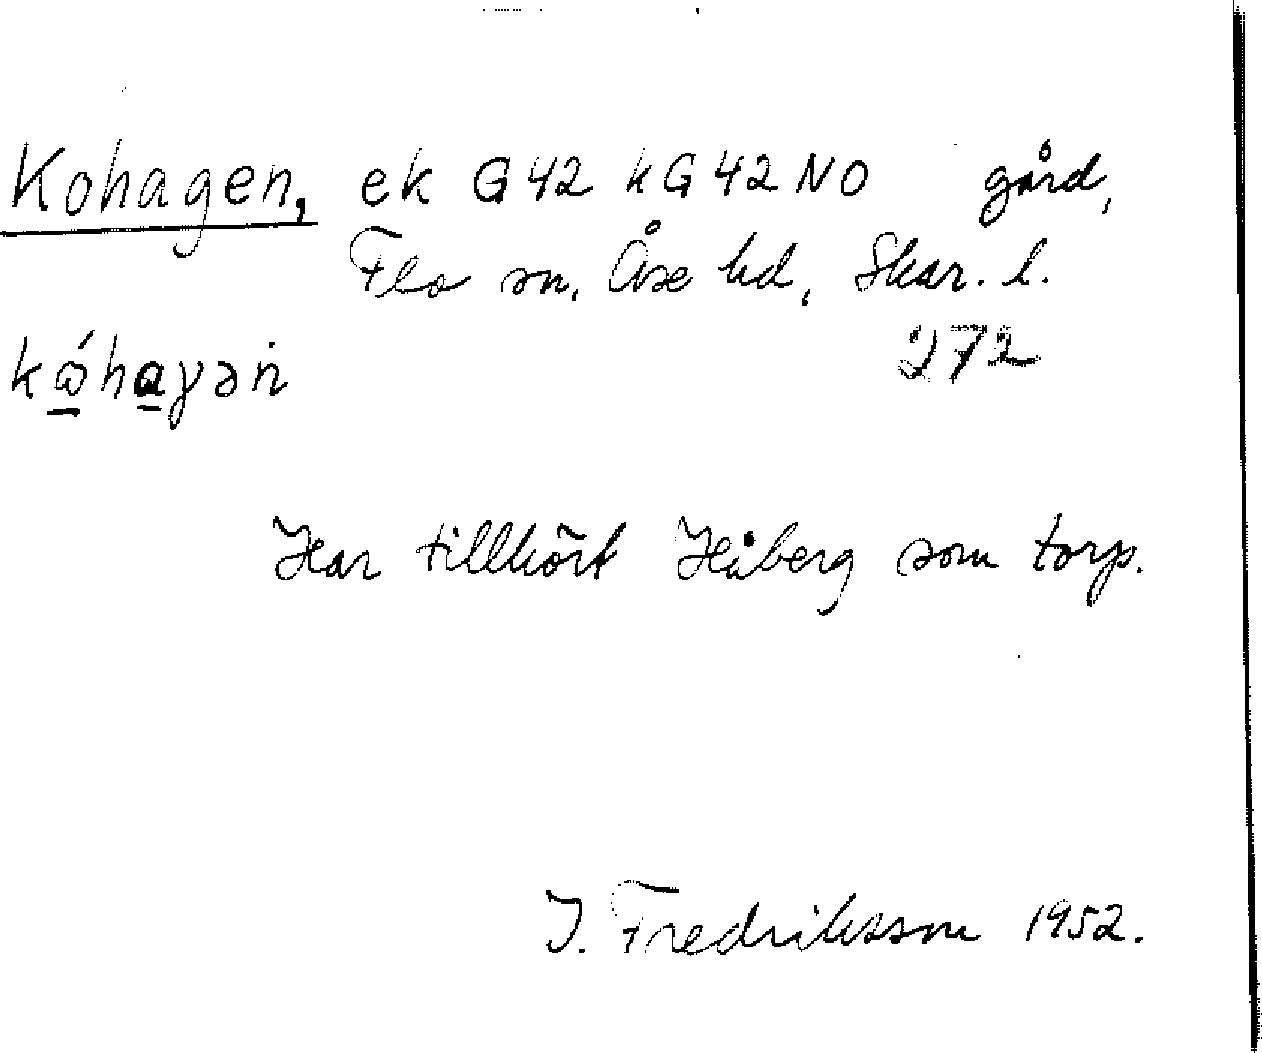 Kohagen, ek G42 kG42NO gård,
Flo sn, Åse hd, Skar. l.
272
kώ̱ha̱γəṅ
Har tillhört Håberg som torp.
I. Fredriksson 1952.